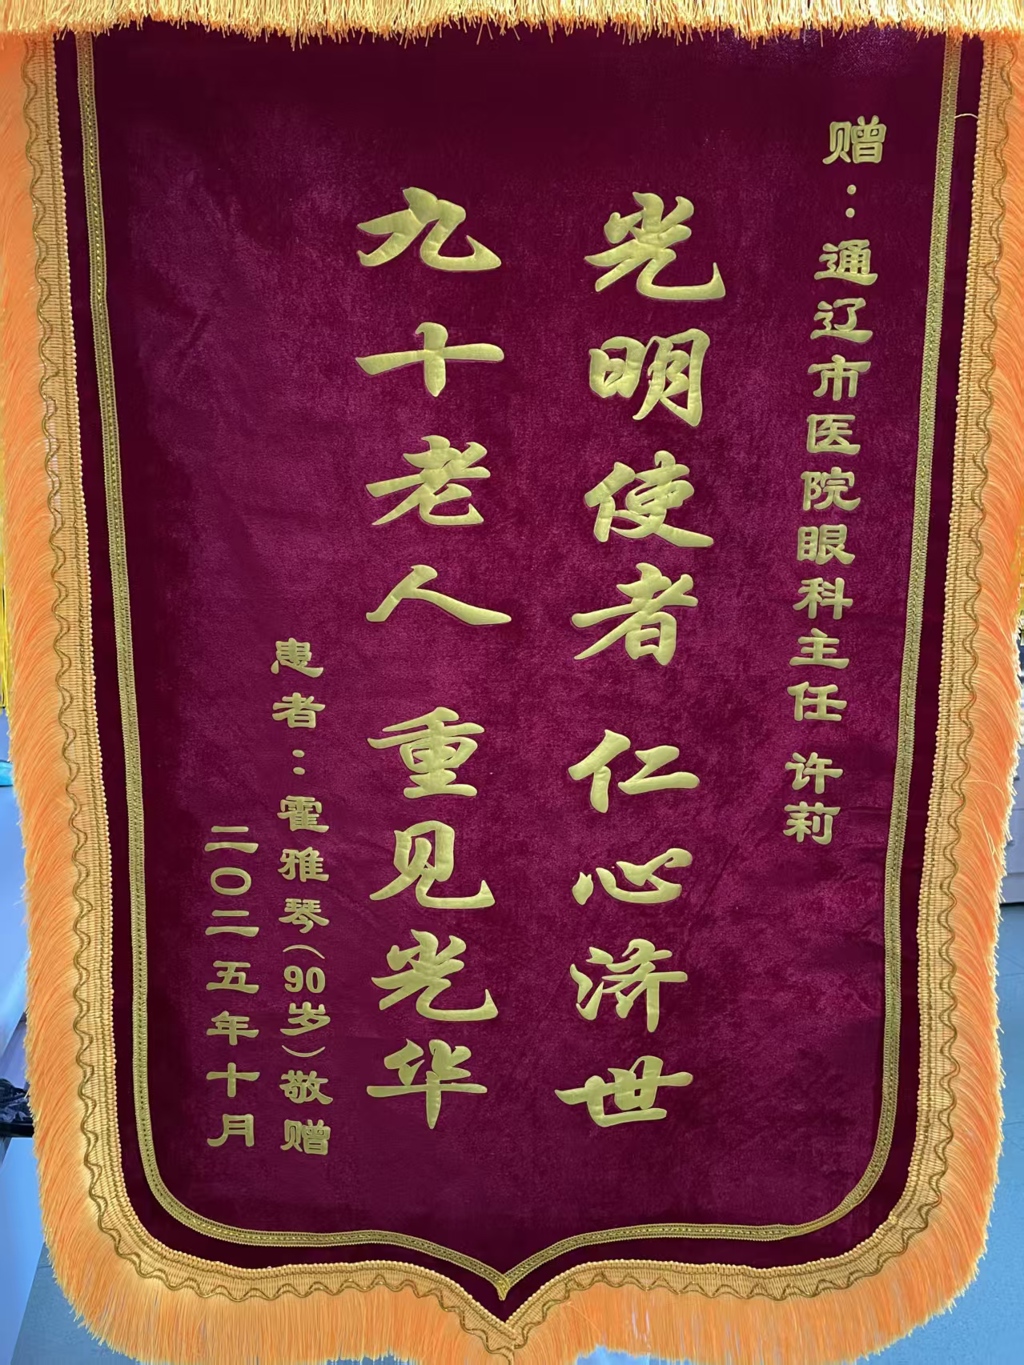 赠：通辽市医院眼科主任 许莉
光明使者 仁心济世
九十老人 重见光华
患者：霍雅琴(90岁)敬赠
二〇二五年十月